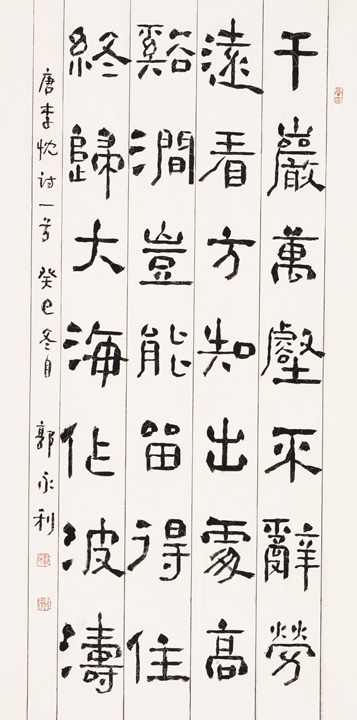 千巖萬壑不辭勞
遠看方知出處高
谿澗豈能留得住
終歸大海作波濤
唐李忱詩一首 癸巳冬月 郭永利